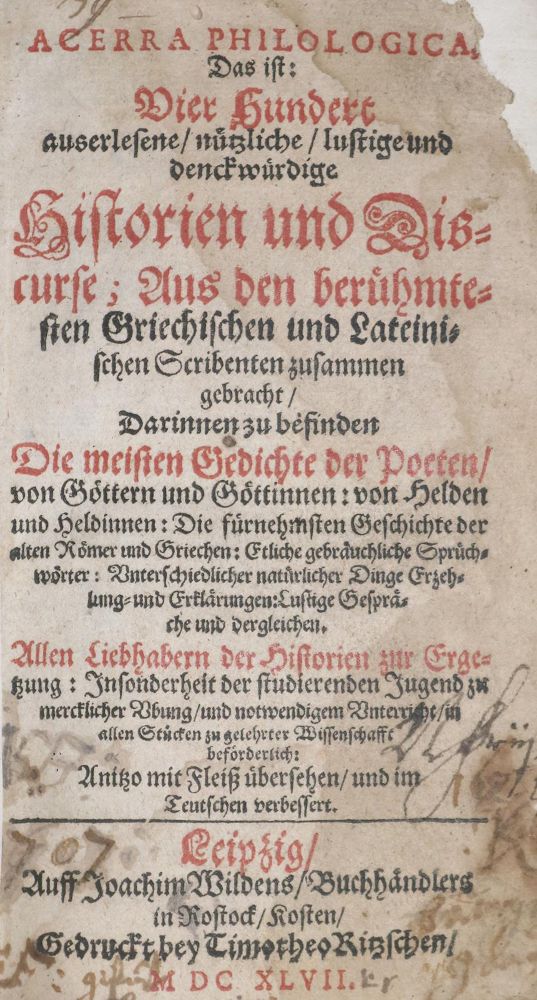 ACERRA PHILOLOGICA,
Das ist:
Vier Hundert
auserlesene/ nützliche/ lustige und
denckwürdige
Historien und Dis-
curse; Aus den berühmte-
sten Griechischen und Lateini-
schen Scribenten zusammen
gebracht/
Darinnen zu befinden
Die meisten Gedichte der Poeten/
von Göttern und Göttinnen: von Helden
und Heldinnen: Die fürnehmsten Geschichte der
alten Römer und Griechen: Etliche gebräuchliche Sprüch-
wörter: Vnterschiedlicher natürlicher Dinge Erzeh-
lung- und Erklärungen: Lustige Gesprä-
che und dergleichen.
Allen Liebhabern der Historien zur Erge-
tzung: Insonderheit der studierenden Jugend zu
mercklicher Vbung/ und notwendigem Vnterricht/ in
allen Stücken zu gelehrter Wissenschafft
beförderlich:
Anitzo mit Fleiß übersehen/ und im
Teutschen verbessert.
Leipzig/
Auff Joachim Wildens/ Buchhändlers
in Rostock/ Kosten/
Gedruckt bey Timotheo Ritzschen/
M DC XLVII.